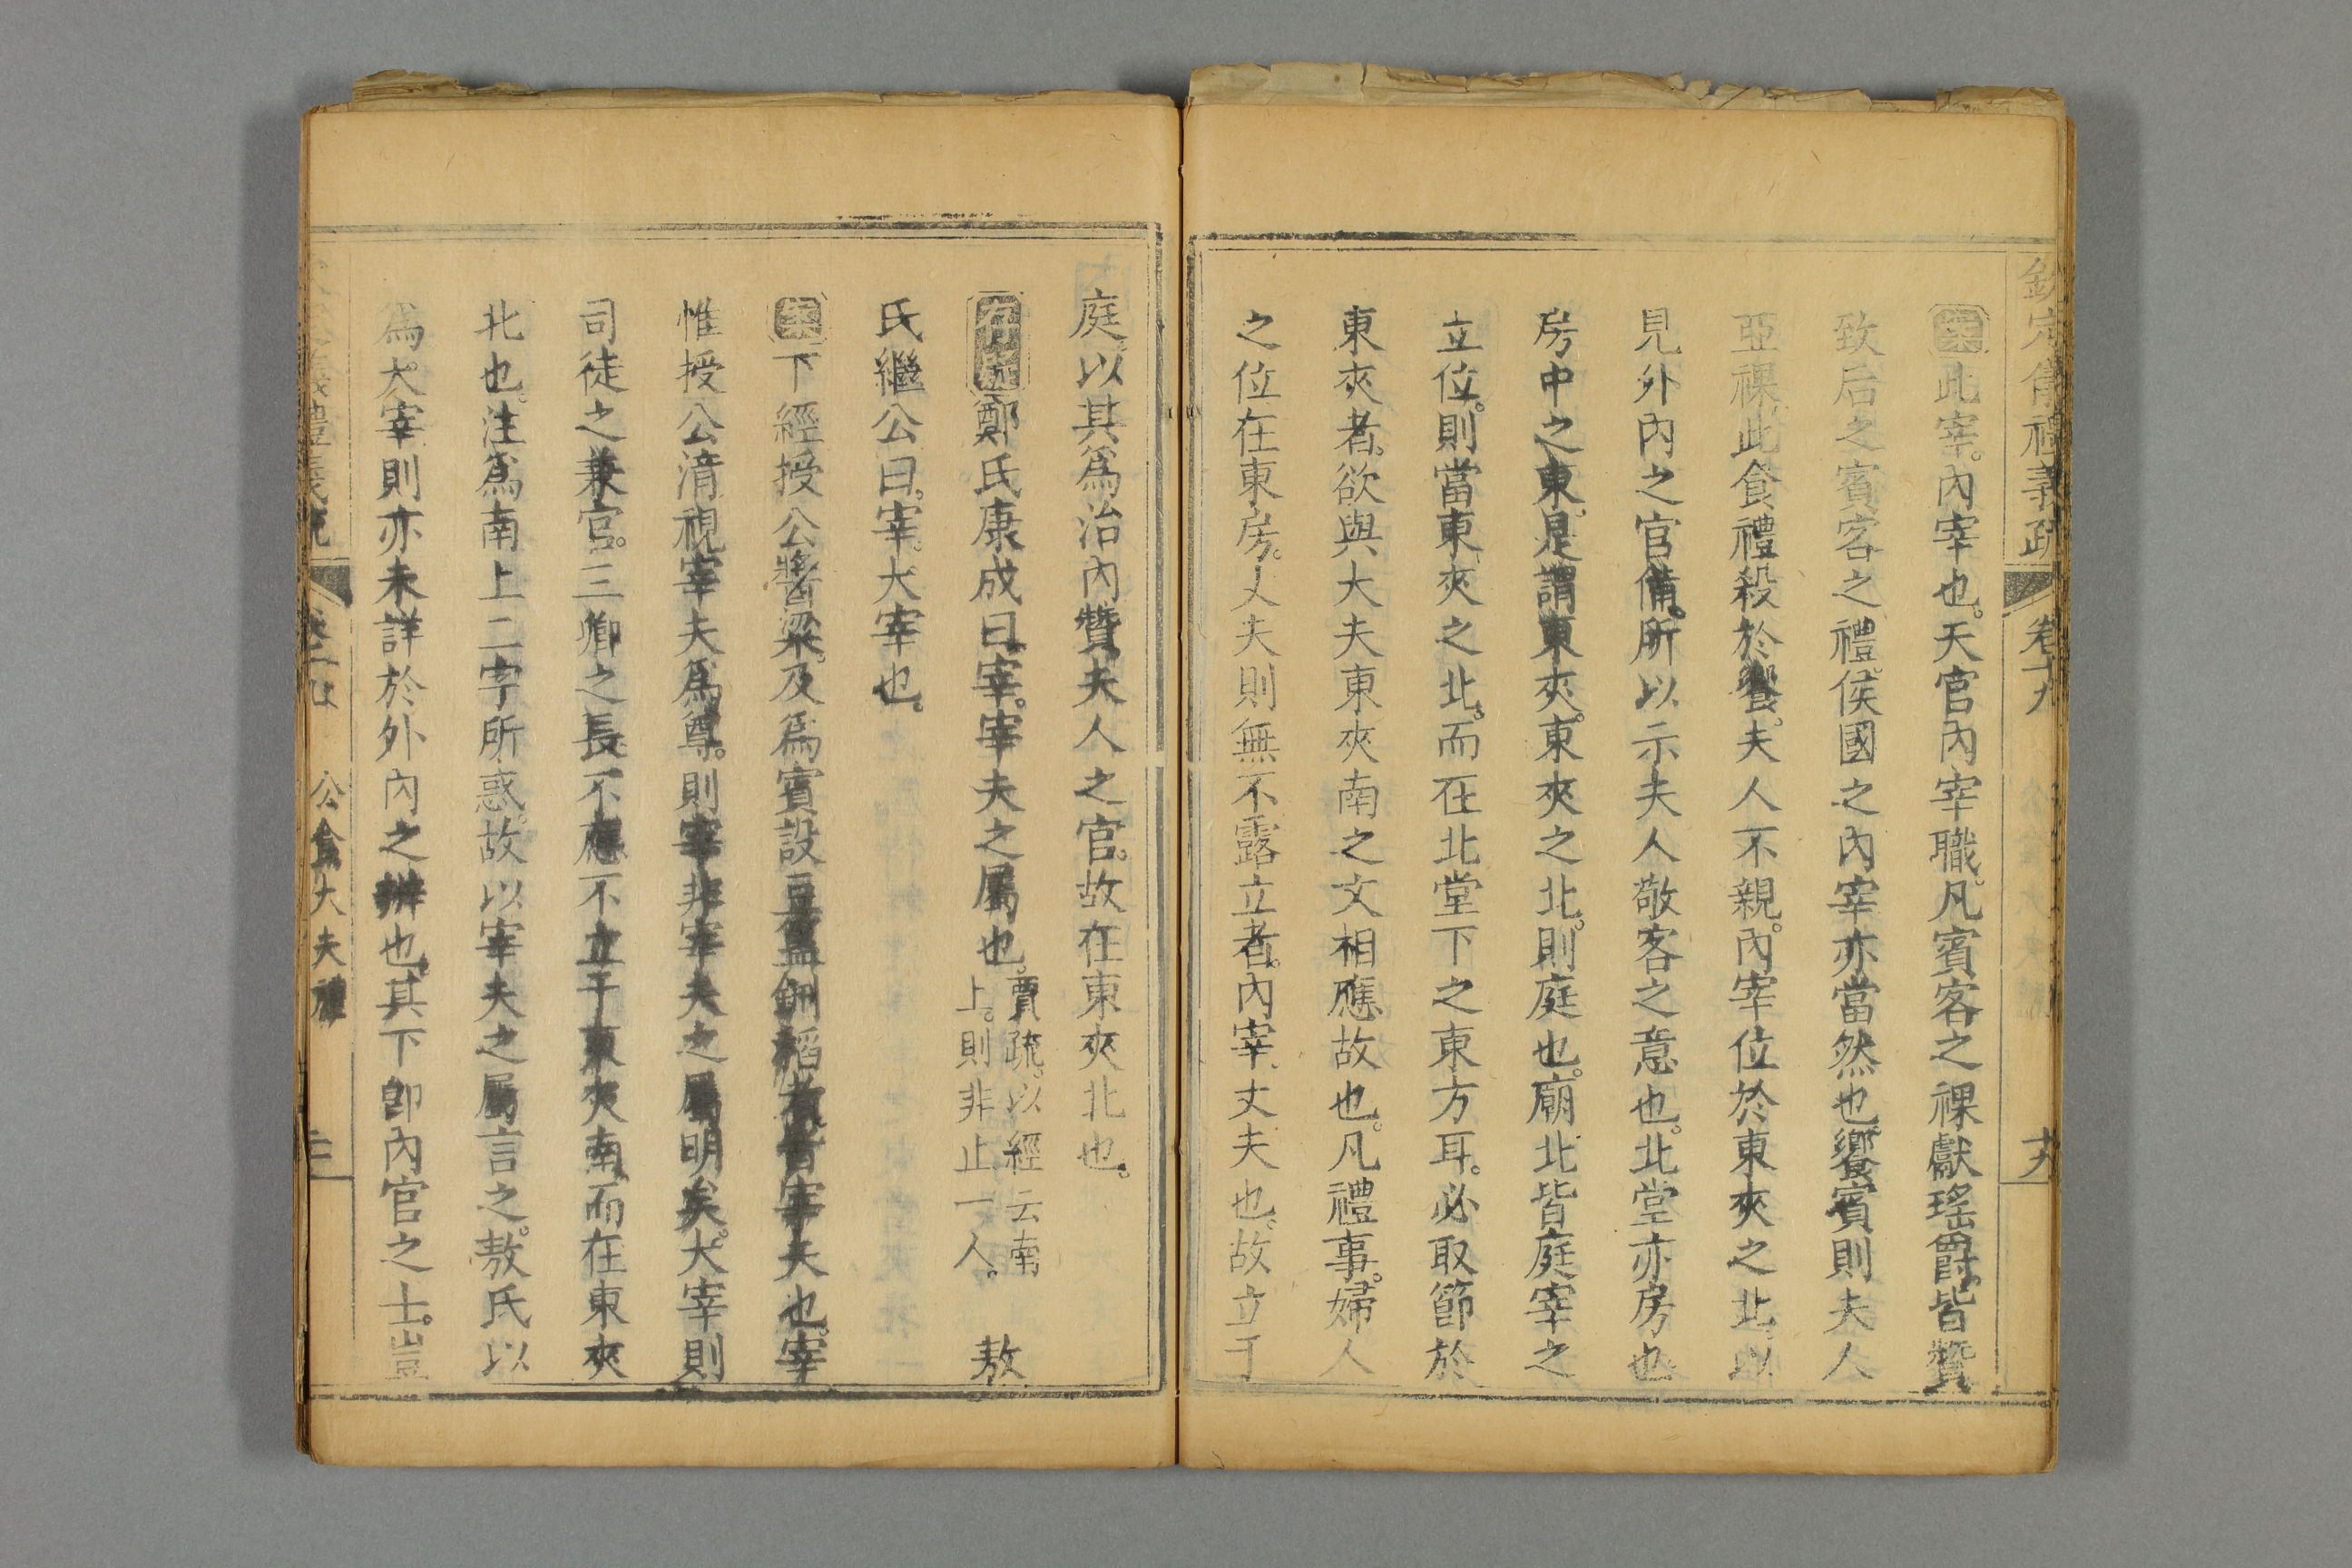 欽定儀禮義疏 卷十九 十九
案此宰。內宰也。天官內宰職。凡賓客之祼獻瑤爵。皆贊
致后之賓客之禮。侯國之內宰亦當然也。饗賓則夫人
亞祼。此食禮殺於饗。夫人不親。內宰位於東夾之北。以
見外內之官備。所以示夫人敬客之意也。北堂亦房也
房中之東。是謂東夾。東夾之北。則庭也。廟北皆庭宰之
立位。則當東夾之北。而在北堂下之東方耳。必取節於
東夾者。欲與大夫東夾南之文相應故也。凡禮事。婦人
之位在東房。丈夫則無不露立者。內宰。丈夫也。故立于
庭。以其爲治內贊夫人之官。故在東夾北也。
存疑鄭氏康成曰。宰。宰夫之屬也。賈疏。以經云南
上。則非止一人。 敖
氏繼公曰。宰。大宰也。
案下經授公醬粱。及爲賓設豆簠鉶稻者。皆宰夫也。宰
惟授公湆。視宰夫爲尊。則宰非宰夫之屬明矣。大宰則
司徒之兼官。三卿之長。不應不立于東夾南。而在東夾
北也。注爲南上二字所惑。故以宰夫之屬言之。敖氏以
爲大宰則亦未詳於外內之辨也。其下卽內官之士。豈
公食大夫禮